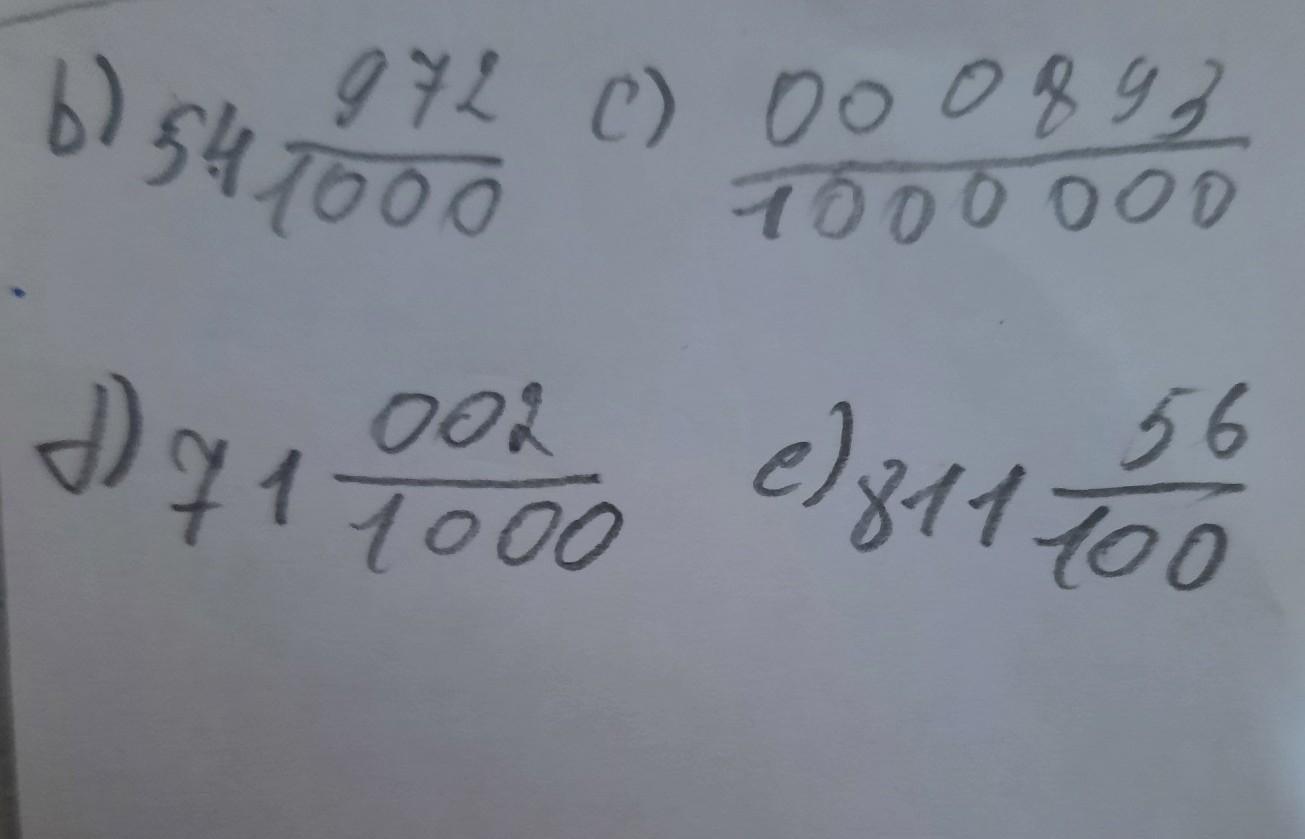 b) 54 972/1000 c) 000893/1000000
d) 71 002/1000 e) 811 56/100